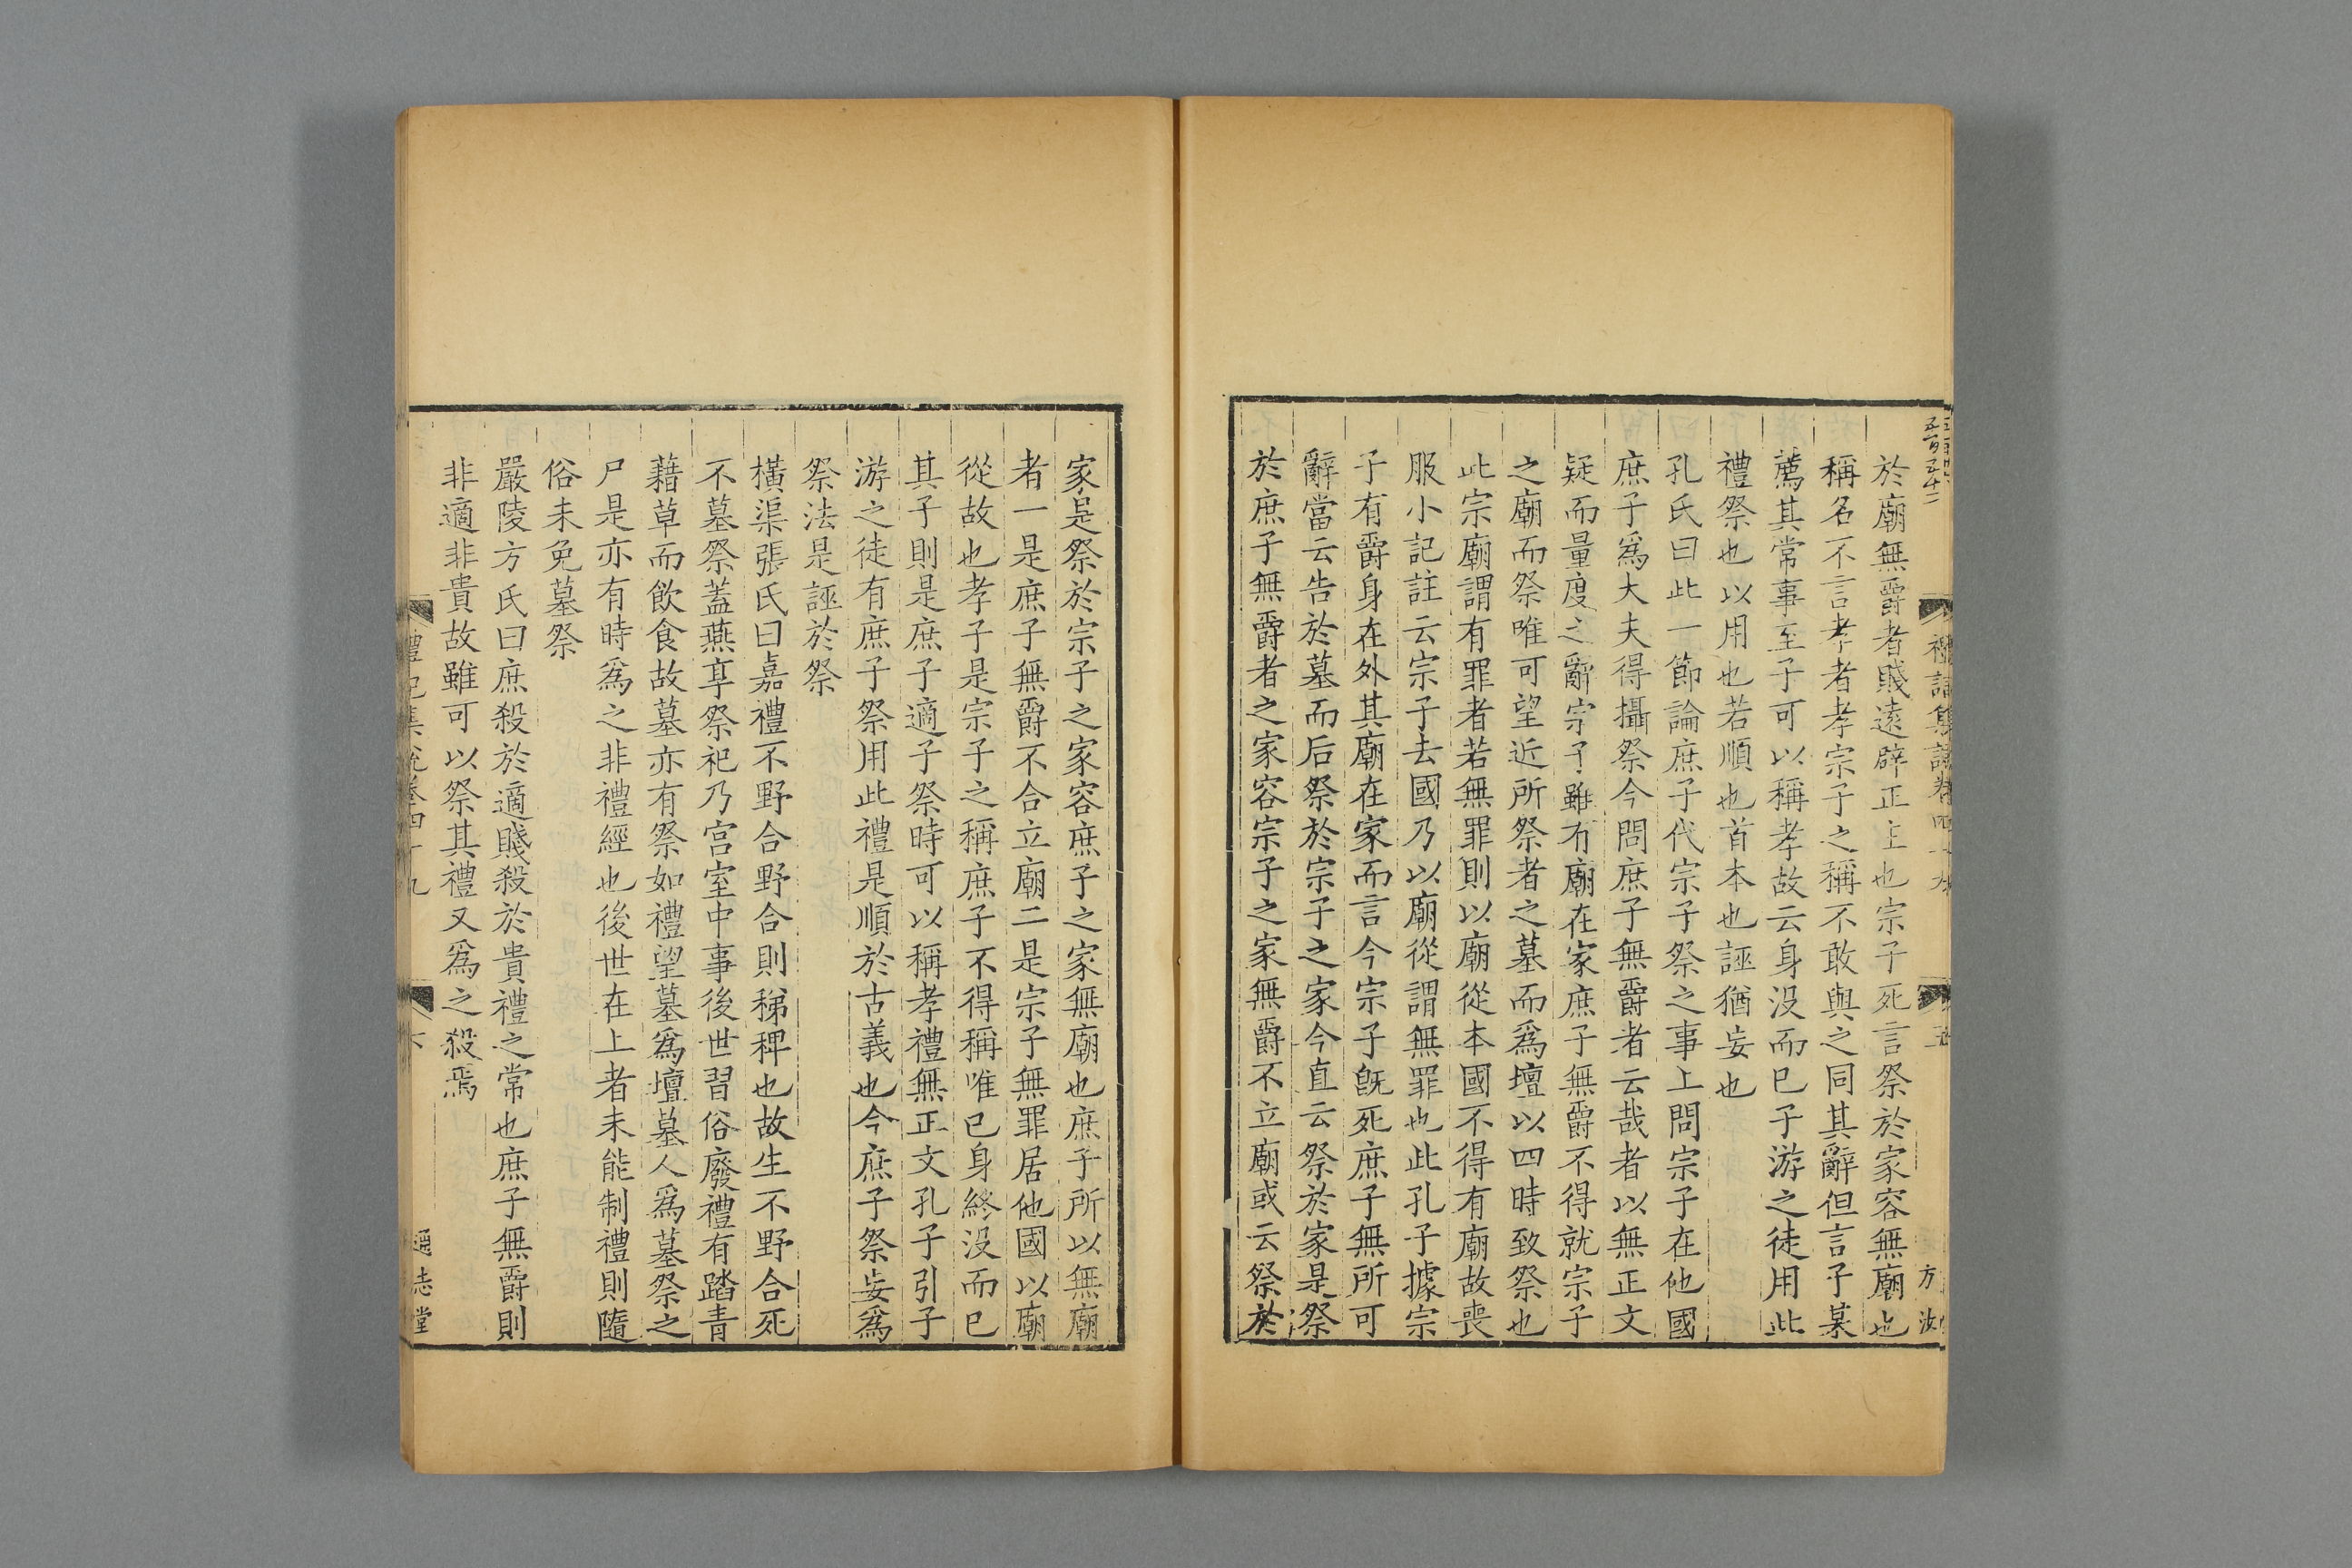 禮記集說卷四十九
五
方汝
於廟無爵者賤遠辟正主也宗子死言祭於家容無廟也
稱名不言孝者孝宗子之稱不敢與之同其辭但言子某
薦其常事至子可以稱孝故云身没而已子游之徒用此
禮祭也以用也若順也首本也誣猶妄也
孔氏曰此一節論庶子代宗子祭之事上問宗子在他國
庶子爲大夫得攝祭今問庶子無爵者云哉者以無正文
疑而量度之辭宗子雖有廟在家庶子無爵不得就宗子
之廟而祭唯可望近所祭者之墓而爲壇以四時致祭也
此宗廟謂有罪者若無罪則以廟從本國不得有廟故喪
服小記註云宗子去國乃以廟從謂無罪也此孔子據宗
子有爵身在外其廟在家而言今宗子旣死庶子無所可
辭當云告於墓而后祭於宗子之家今直云祭於家是祭
於庶子無爵者之家容宗子之家無爵不立廟或云祭於
家是祭於宗子之家容庶子之家無廟也庶子所以無廟
者一是庶子無爵不合立廟二是宗子無罪居他國以廟
從故也孝子是宗子之稱庶子不得稱唯已身終没而已
其子則是庶子適子祭時可以稱孝禮無正文孔子引子
游之徒有庶子祭用此禮是順於古義也今庶子祭妄爲
祭法是誣於祭
橫渠張氏曰嘉禮不野合野合則稊稗也故生不野合死
不墓祭蓋燕享祭祀乃宫室中事後世習俗廢禮有踏青
藉草而飲食故墓亦有祭如禮望墓爲壇墓人爲墓祭之
尸是亦有時爲之非禮經也後世在上者未能制禮則隨
俗未免墓祭
嚴陵方氏曰庶殺於適賤殺於貴禮之常也庶子無爵則
非適非貴故雖可以祭其禮又爲之殺焉
禮記集說卷四十九
六
通志堂